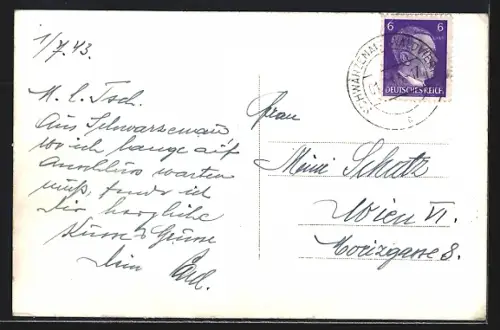 1/7.43.
M. l. Tschl.
Aus Schwarzenau
wo ich lange auf
Anschluss warten
muß, sende ich
Dir herzliche
Küsse & Grüsse
Dein
6 6
DEUTSCHES REICH
Frau
Mimi Schatz
Wien VI.
Morizgasse 8.